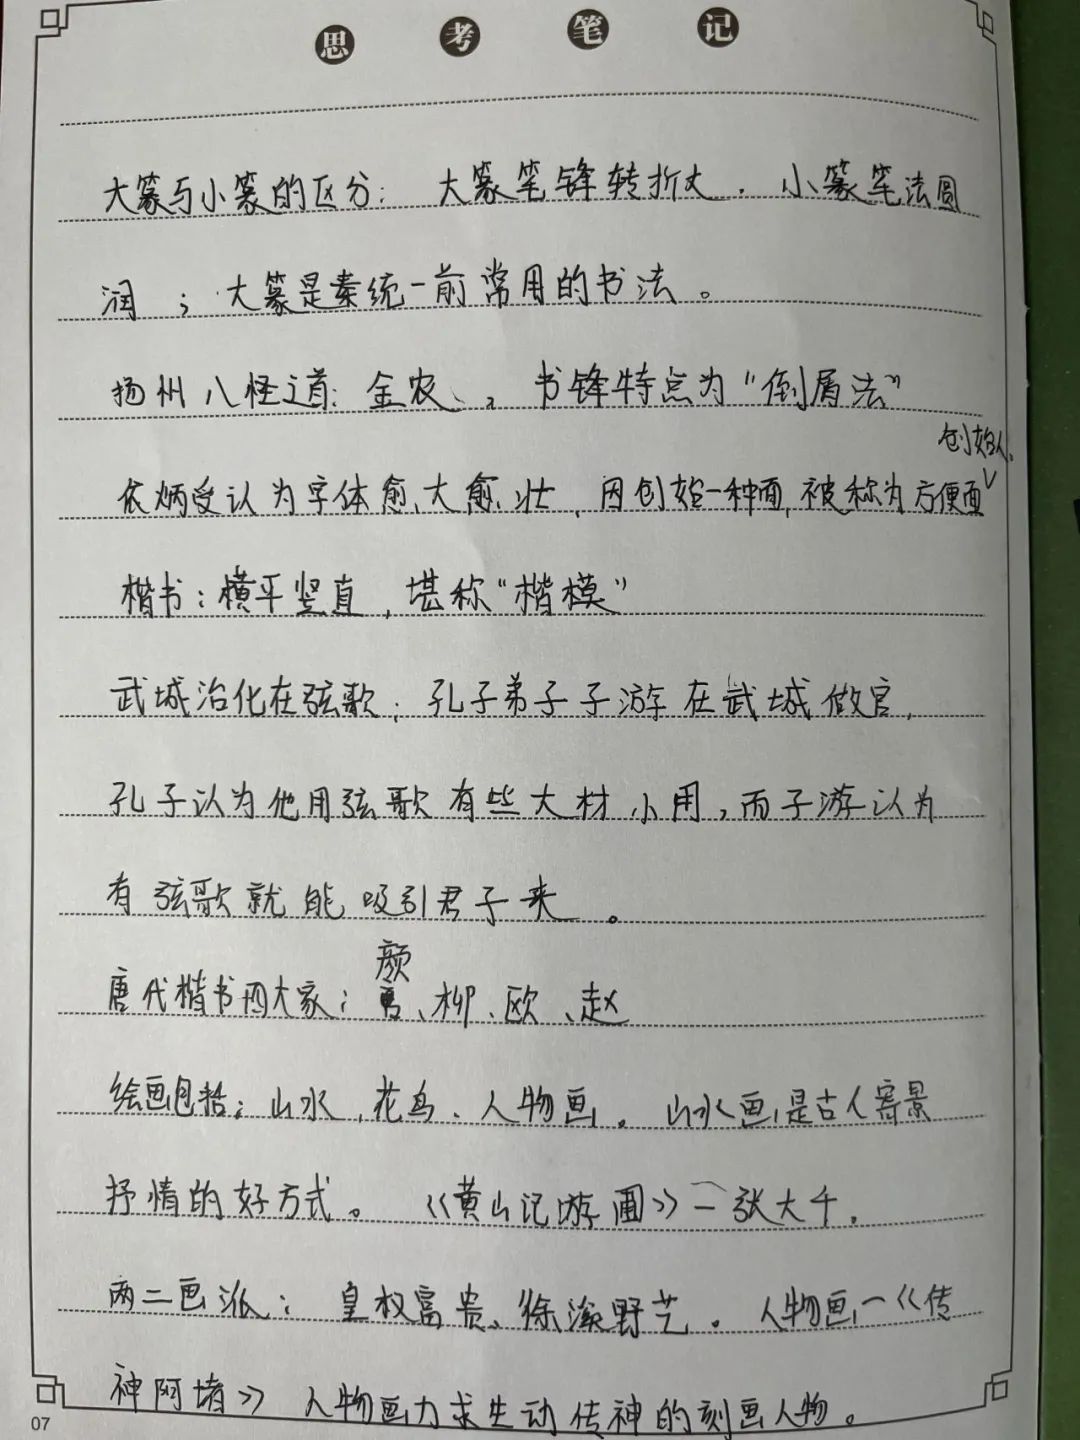 思考笔记
大篆与小篆的区分: 大篆笔锋转折大. 小篆笔法圆
润 ; 大篆是秦统一前常用的书法。
扬州八怪之首: 金农、, 书锋特点为“倒屑法”
创始人
依炳受认为字体愈大愈壮, 因创始一种面,被称为方便面
楷书: 横平竖直, 堪称“楷模”
武城治化在弦歌: 孔子弟子子游在武城做官,
孔子认为他用弦歌有些大材小用,而子游认为
有弦歌就能吸引君子来。
颜
唐代楷书四大家: 、柳、欧、赵
绘画包括: 山水,花鸟、人物画。山水画,是古人寄景
抒情的好方式。《黄山记游画》—张大千.
两二画派: 皇权富贵、徐溪野艺。人物画—《传
神阿堵》 人物画力求生动传神的刻画人物。
07